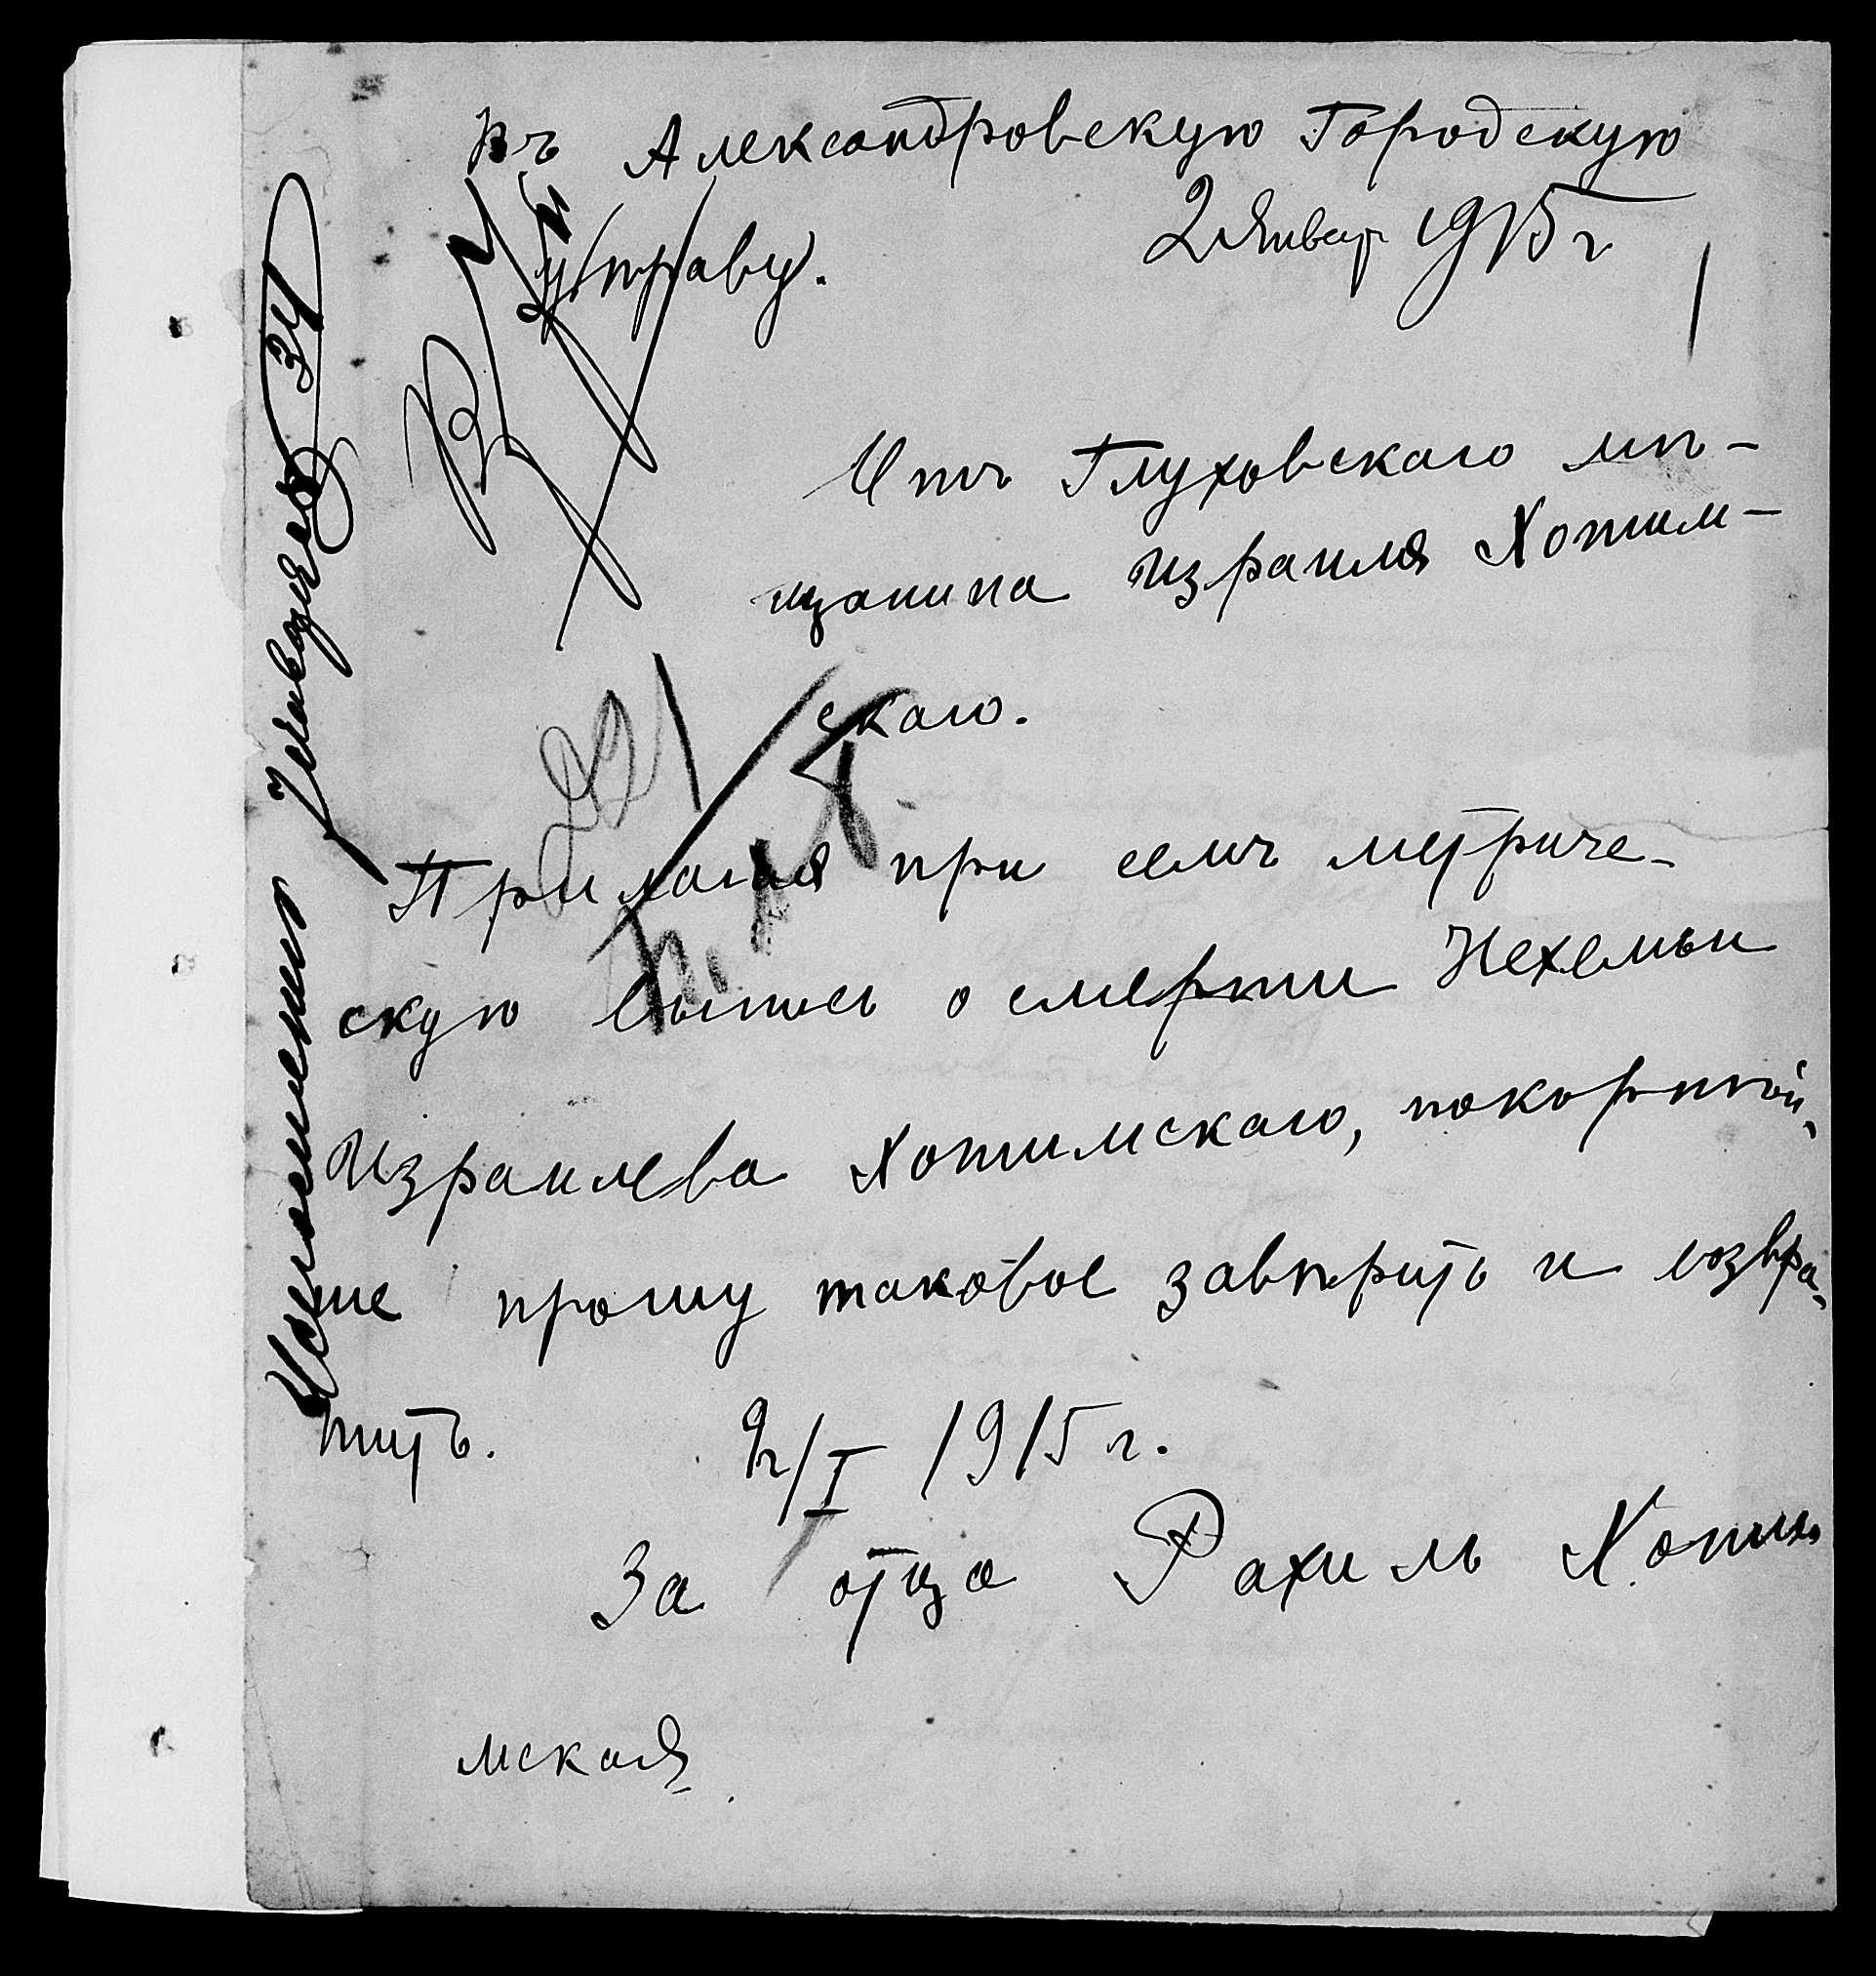 Въ Александровскую Городскую
Управу.
2 Январ 1915 г
Отъ Глуховскаго мѣ-
щанина Израиля Хотим-
скаго.
Прилагая при семъ метриче-
скую выпись о смерти Нехемьи
Израилева Хотимскаго, покорнѣй-
ше прошу таковое завѣрить и возвра-
тить. 2/I 1915 г.
За отца Рахиль Хоти-
мская
34